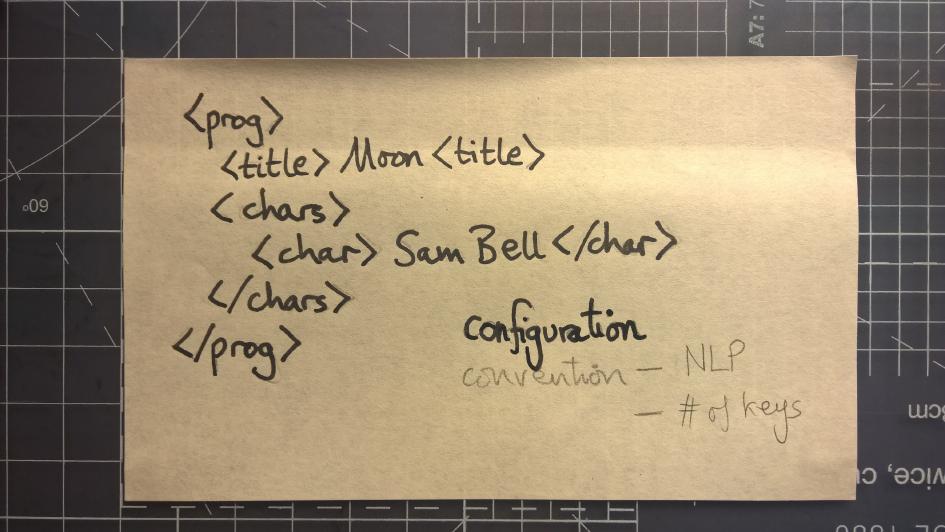 <prog>
<title> Moon <title>
<chars>
<char> Sam Bell </char>
</chars>
</prog>
configuration
convention — NLP
— # of keys
A7:
60°